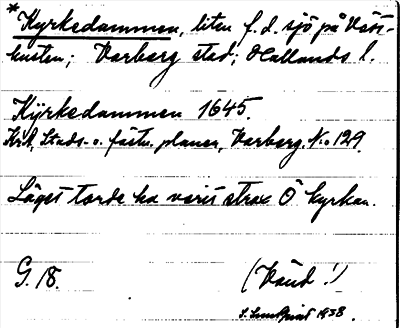 * Kyrkedammen, liten f.d. sjö på Väst-
kusten; Varberg stad; Hallands l.
Kÿrkedammen 1645.
KrA, Stads- o. fästn. planer, Varberg. No 129.
Läget torde ha varit strax Ö kyrkan.
G. 18. (Vänd!)
S. Lundqvist 1938.